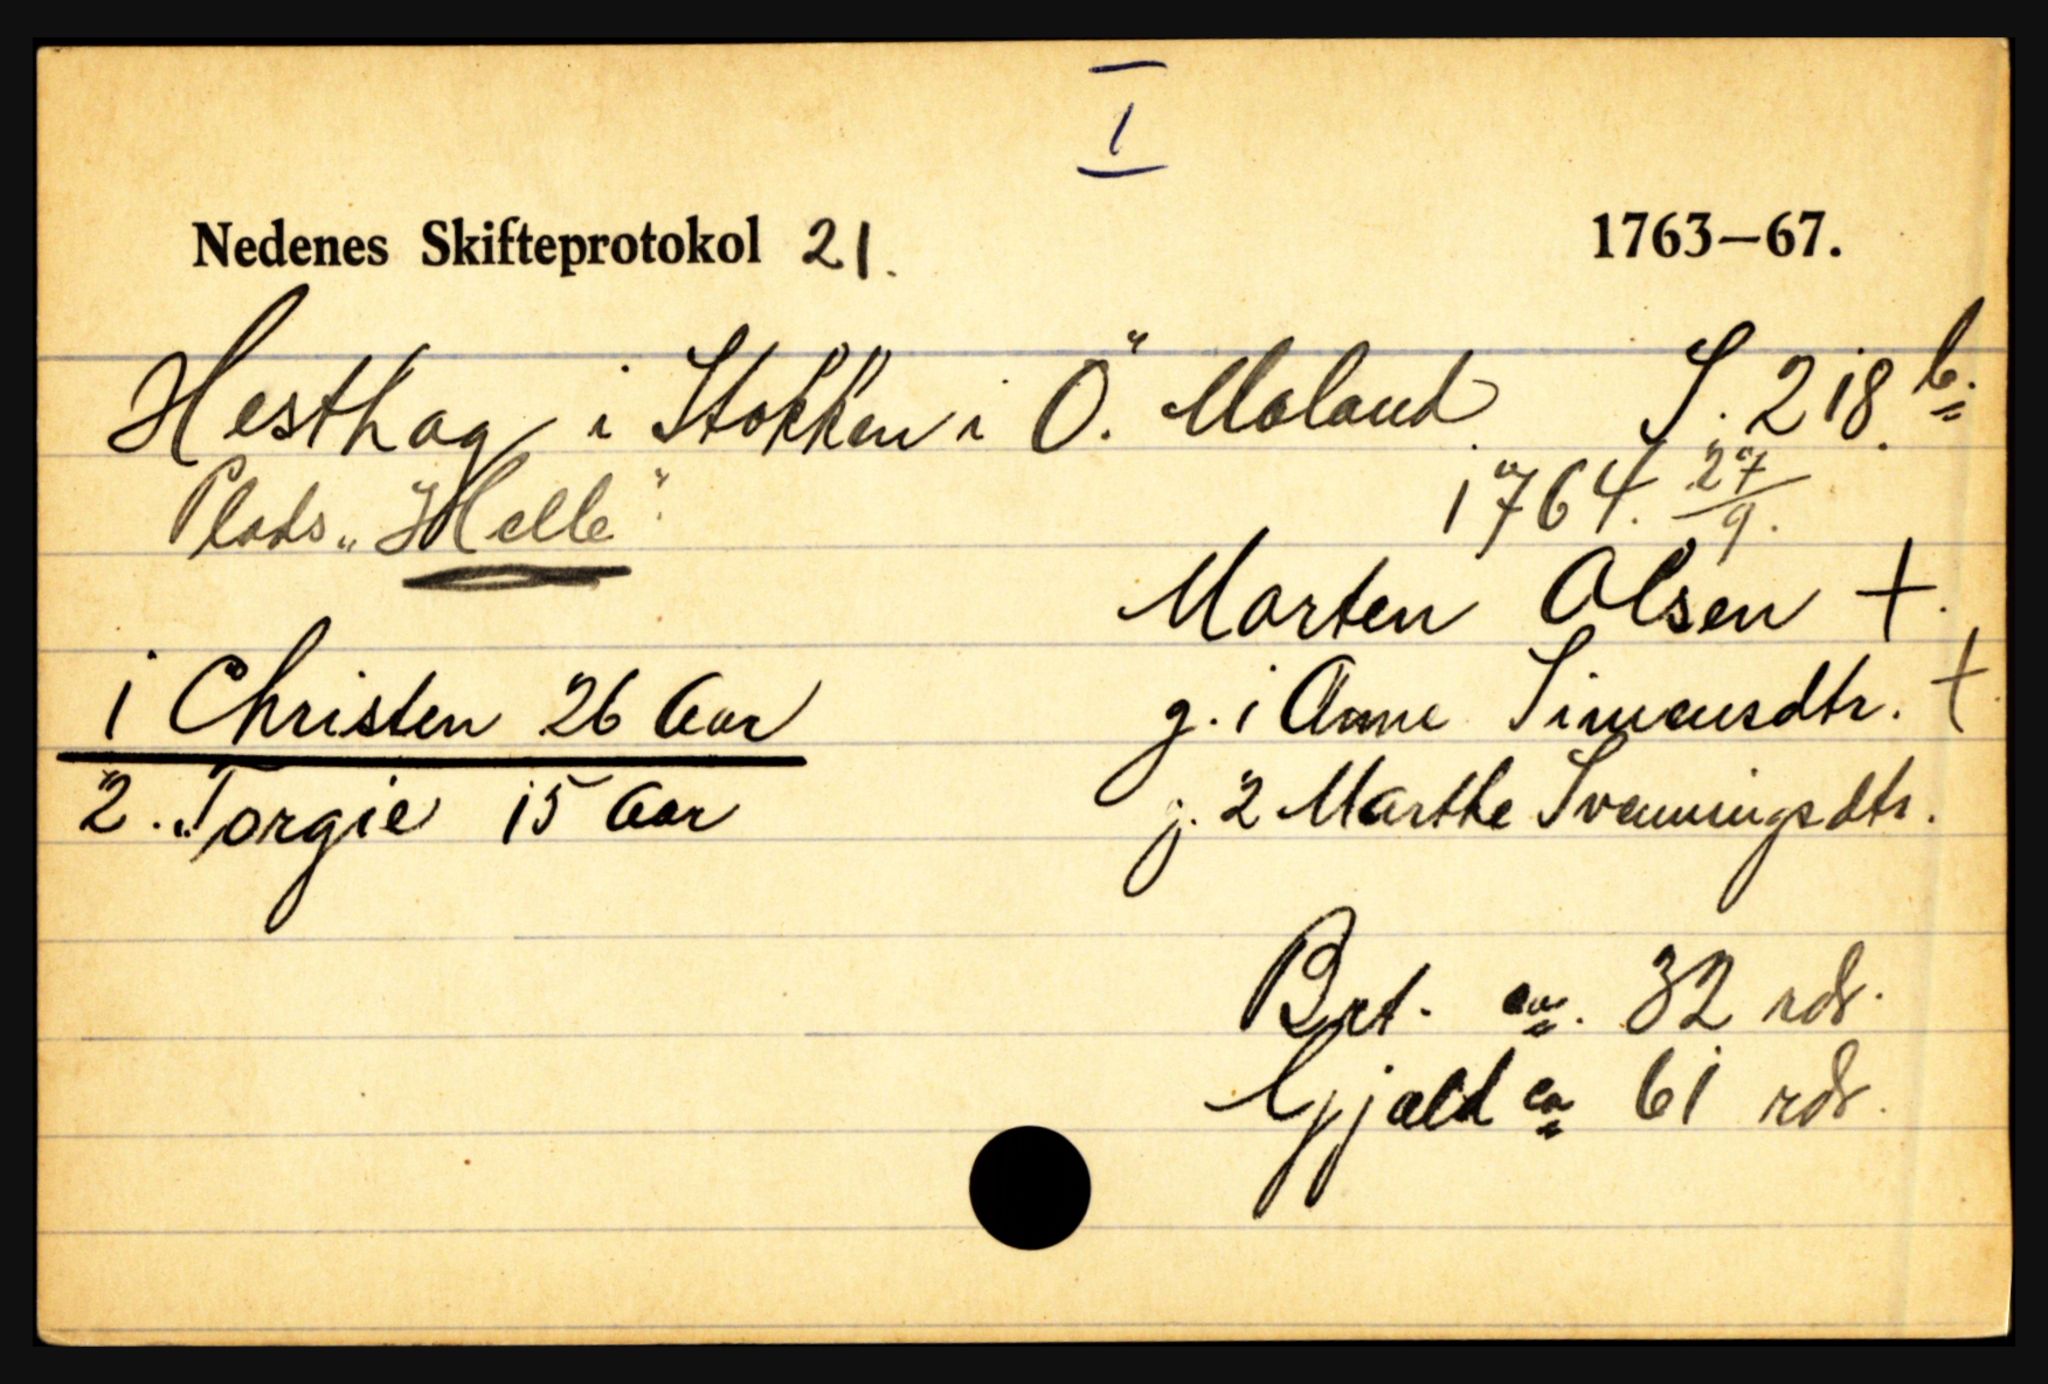 I
Nedenes Skifteprotokol 21. 1763–67.
Hesthag i Stokken i Ö. Moland. S. 218 b.
Plads „Helle". 1764. 27/9.
Morten Olsen +.
1 Christen 26 Aar g. 1 Anne Simensdtr. +
2. „Torgie 15 Aar g. 2 Marthe Svenningsdtr.
Brt. ca. 32 rdr.
Gjæld ca 61 rdr.